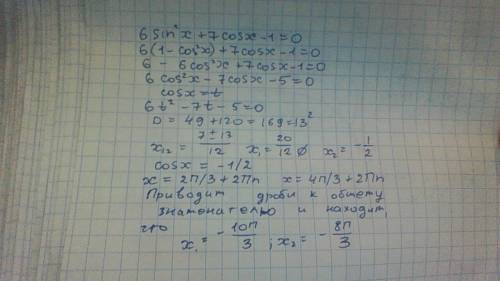 6 sin²x + 7cosx - 1 = 0
6(1 - cos²x) + 7cosx - 1 = 0
6 - 6cos²x + 7cosx - 1 = 0
6 cos²x - 7cosx - 5 = 0
cosx = t
6t² - 7t - 5 = 0
D = 49 + 120 = 169 = 13²
x₁₂ = (7 ± 13)/12   x₁ = 20/12 ∅   x₂ = -1/2
cosx = -1/2
x = 2П/3 + 2Пn   x = 4П/3 + 2Пn
Приводит дроби к общему
знаменателю и находит,
что
x₁ = -10П/3 ; x₂ = -8П/3